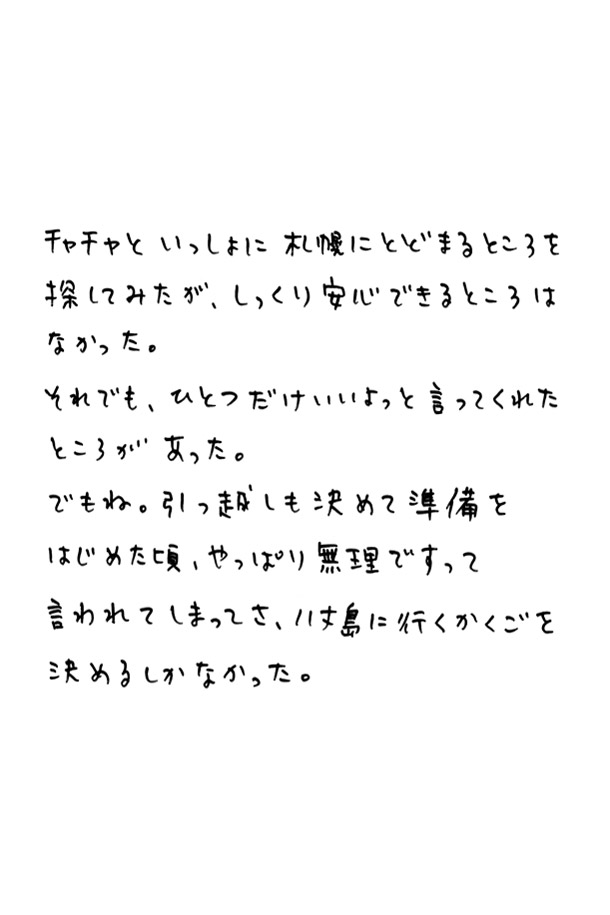 チャチャと いっしょに 札幌にとどまるところを
探してみたが、しっくり安心できるところは
なかった。
それでも、ひとつだけいいよっと言ってくれた
ところが あった。
でもね。引っ越しも決めて準備を
はじめた頃、やっぱり無理ですって
言われてしまってさ、八丈島に行くかくごを
決めるしかなかった。